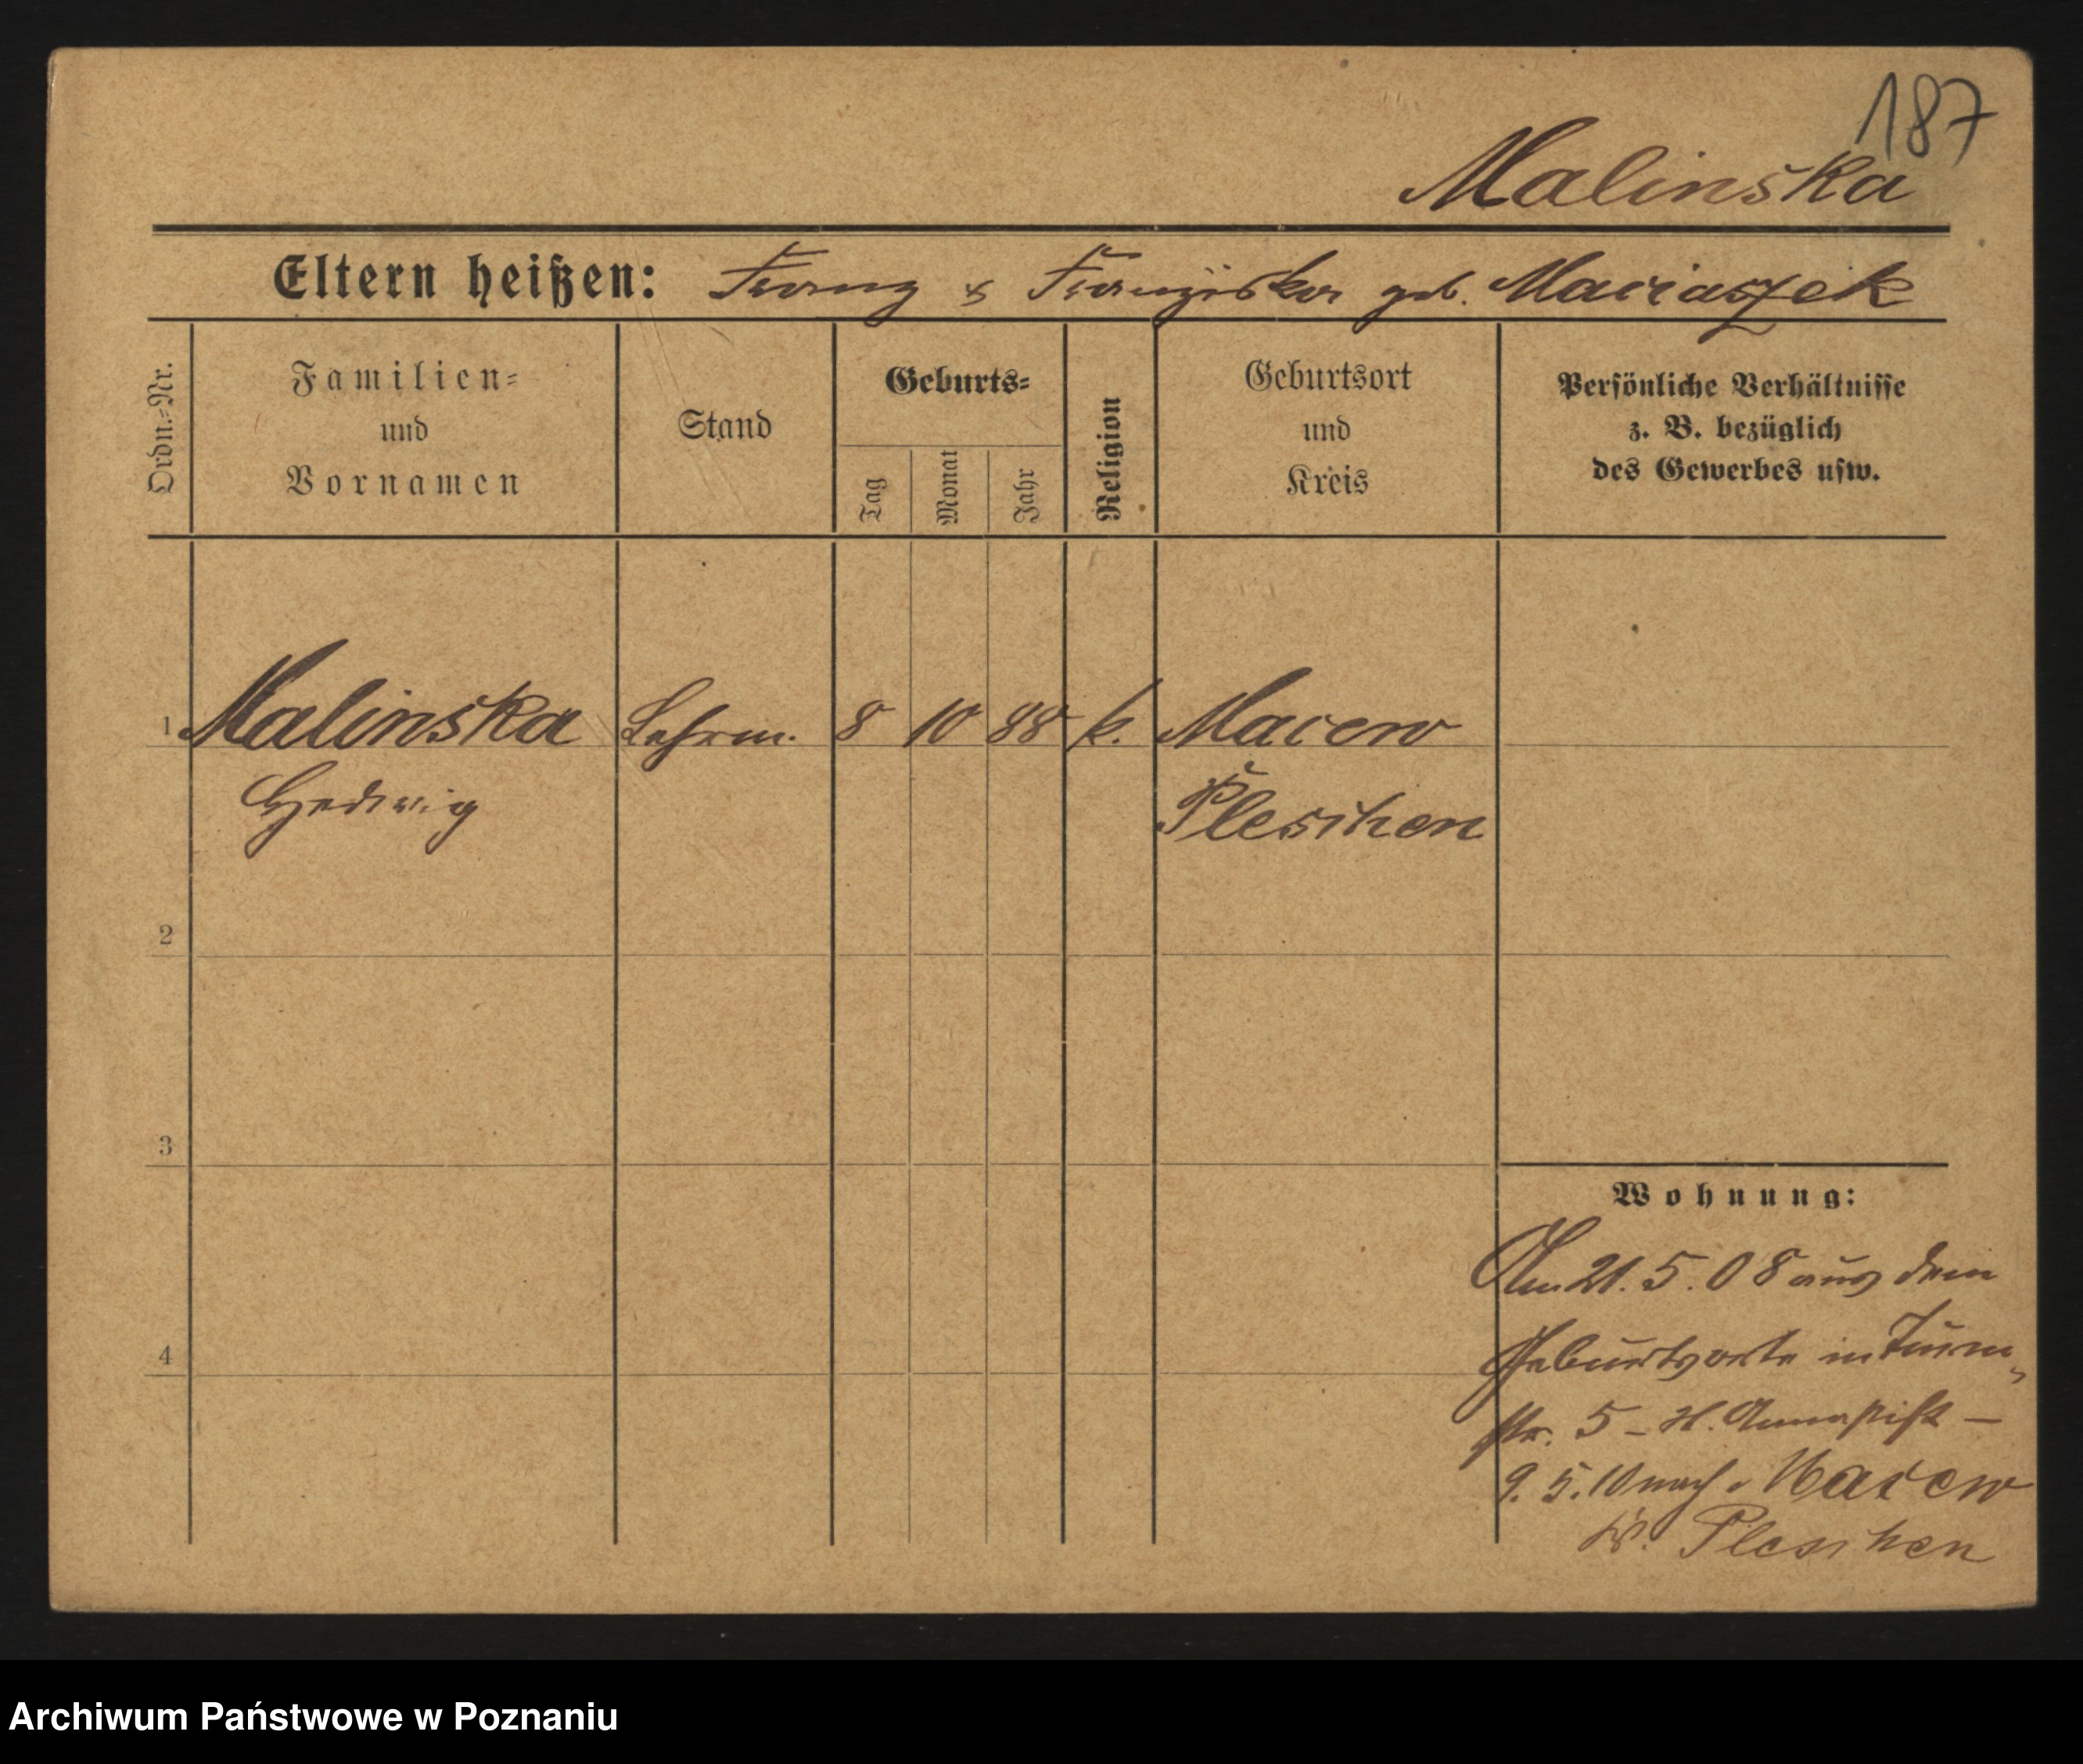 187
Malinska
Eltern heißen: Franz & Franziska geb. Maciaszek
Ordn.-Nr.
Familien-
und
Vornamen
Stand
Geburts-
Tag
Monat
Jahr
Religion
Geburtsort
und
Kreis
Persönliche Verhältnisse
z. B. bezüglich
des Gewerbes usw.
1 Malinska Lehrm. 8 10 88 k. Macew
Hedwig Pleschen
2
3
4
Wohnung:
Am 21. 5. 08 aus dem
Geburtsorte in Turm-
str. 5 - St. Annastift -
9. 5. 10 nach Macew
Kr. Pleschen
Archiwum Państwowe w Poznaniu